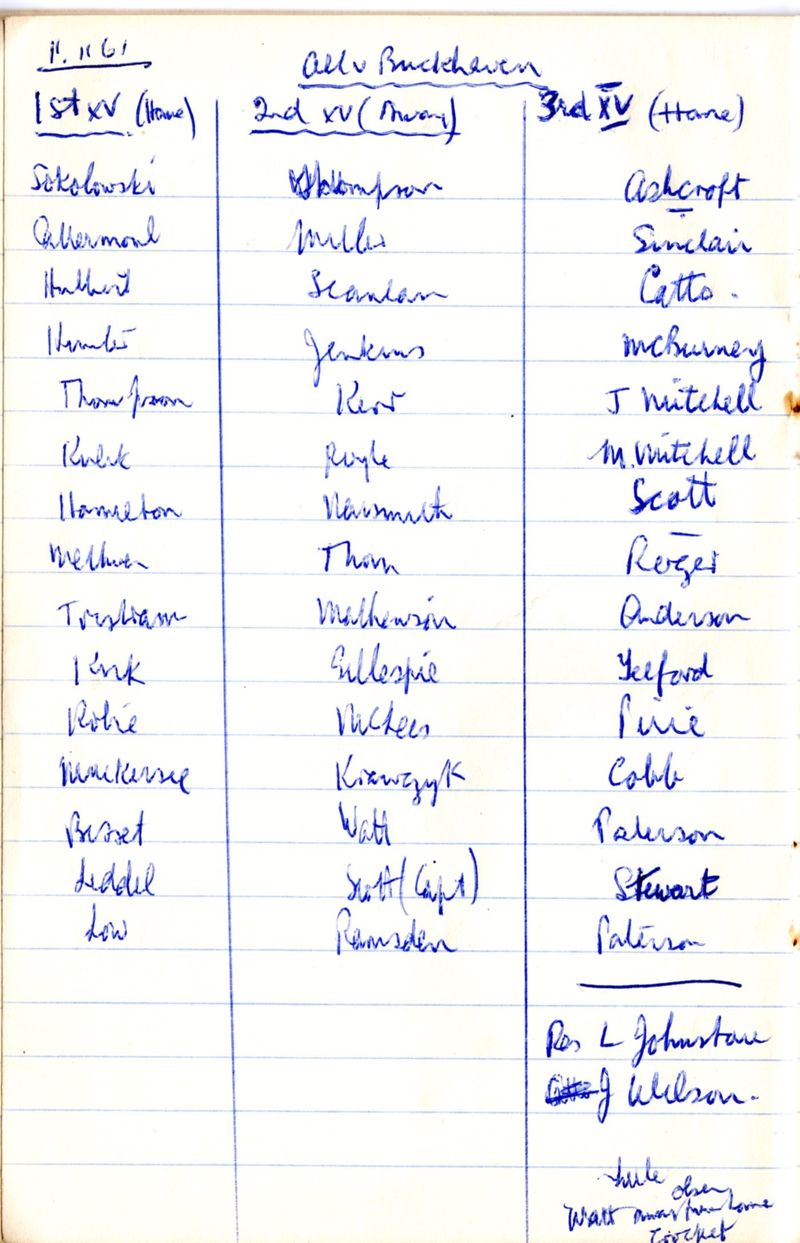 11.11.61
All v Buckhaven
1st XV (Home)
Sokolowski
Hulbert
Hunter
Thompson
Kulik
Hamilton
Methven
Tristram
Kirk
Robie
Mackersie
Bisset
Liddel
Low
2nd XV (Away)
Thompson
Miller
Scanlan
Jenkins
Kerr
Royle
Naismith
Thom
Mathewson
Gillespie
McLees
Krawczyk
Watt
Scott (Capt)
Ramsden
3rd XV (Home)
Ashcroft
Sinclair
Catto.
McBurney
J Mitchell
M. Mitchell
Scott
Roger
Anderson
Telford
Pirie
Cobb
Paterson
Stewart
Paterson
Res L Johnstone
J Wilson.
Olsen
Watt
Crocket